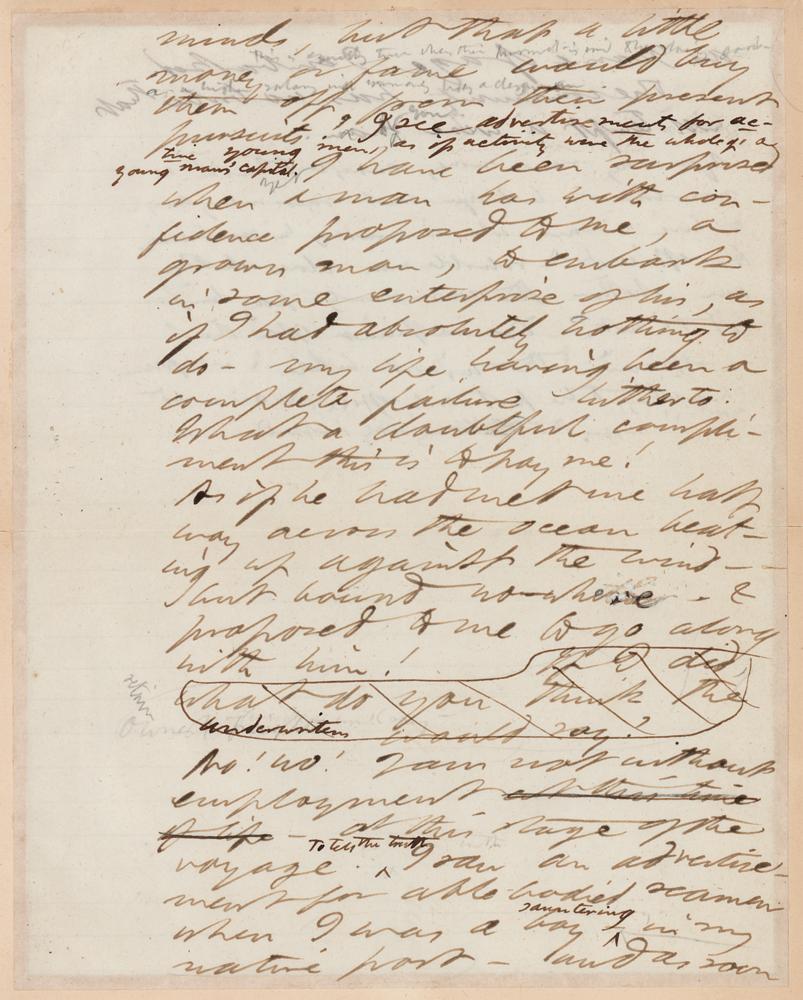 minds, but that a little
money or fame would buy
them off from their present
pursuit. I see advertisements for ac-
tive young men, as if activity were the whole of a
young man's capital. I have been surprised
when a man has with con-
fidence proposed to me, a
grown man, to embark
in some enterprise of his, as
if I had absolutely nothing to
do - my life having been a
complete failure hitherto.
What a doubtful compli-
ment this is to pay me!
As if he had met me half
way across the ocean beat-
ing up against the wind -
but bound no-where - &
proposed to me to go along
with him! If I did,
what do you think the
underwriters would say?
No! no! I am not without
employment at this time
of life - at this stage of the
voyage. To tell the truth I saw an advertise-
ment for able-bodied seamen
when I was a boy sauntering in my
native port - and as soon
retain